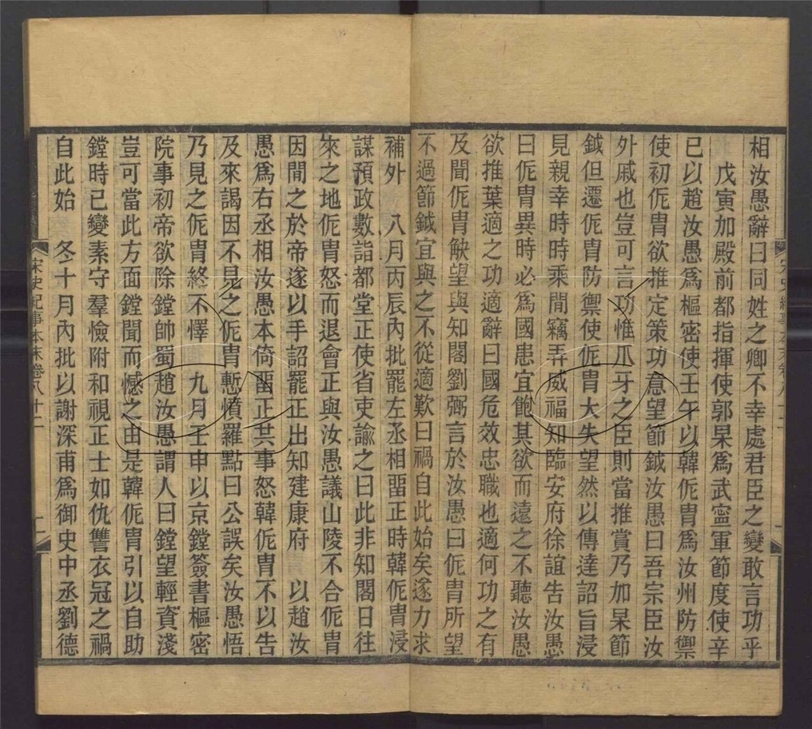 相汝愚辭曰同姓之卿不幸處君臣之變敢言功乎
戊寅加殿前都指揮使郭杲爲武寧軍節度使辛
巳以趙汝愚爲樞密使壬午以韓侂胄爲汝州防禦
使初侂胄欲推定策功意望節鉞汝愚曰吾宗臣汝
外戚也豈可言功惟爪牙之臣則當推賞乃加杲節
鉞但遷侂胄防禦使侂胄大失望然以傳達詔旨浸
見親幸時時乘間竊弄威福知臨安府徐誼吿汝愚
曰侂胄異時必爲國患宜飽其欲而遠之不聽汝愚
欲推葉適之功適辭曰國危效忠職也適何功之有
及聞侂胄觖望與知閤劉弼言於汝愚曰侂胄所望
不過節鉞宜與之不從適歎曰禍自此始矣遂力求
補外　八月丙辰內批罷左丞相畱正時韓侂胄浸
謀預政數詣都堂正使省吏諭之曰此非知閤日往
來之地侂胄怒而退會正與汝愚議山陵不合侂胄
因間之於帝遂以手詔罷正出知建康府　以趙汝
愚爲右丞相汝愚本倚畱正共事怒韓侂胄不以吿
及來謁因不見之侂胄慙憤羅點曰公誤矣汝愚悟
乃見之侂胄終不懌　九月壬申以京鏜簽書樞密
院事初帝欲除鏜帥蜀趙汝愚謂人曰鏜望輕資淺
豈可當此方面鏜聞而憾之由是韓侂胄引以自助
鏜時已變素守羣憸附和視正士如仇讐衣冠之禍
自此始　冬十月內批以謝深甫爲御史中丞劉德
宋史紀事本末卷八十二